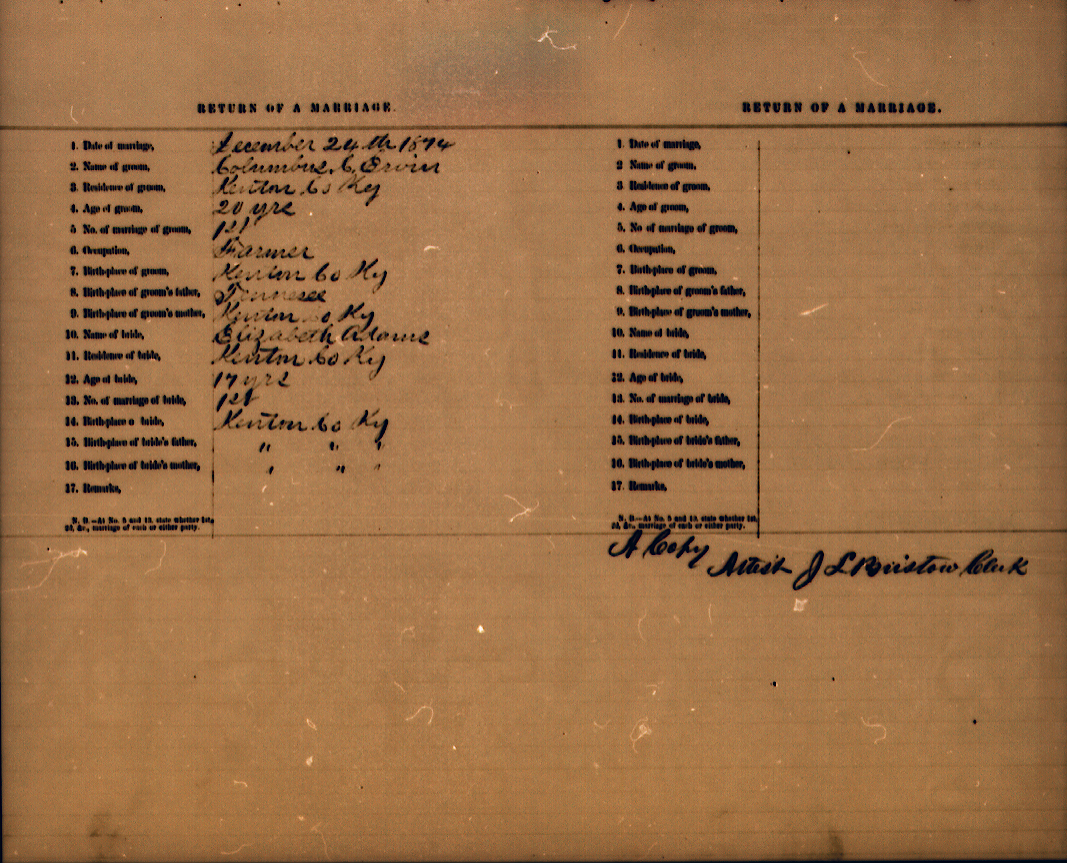 RETURN OF A MARRIAGE.
1. Date of marriage, December 24th 1874
2. Name of groom, Columbus C. Ervin
3. Residence of groom, Kenton Co Ky
4. Age of groom, 20 yrs
5 No. of marriage of groom, 1st
6. Occupation, Farmer
7. Birthplace of groom, Kenton Co Ky
8. Birthplace of groom's father, Tennesee
9. Birthplace of groom's mother, Kenton Co Ky
10. Name of bride, Elizabeth Adams
11. Residence of bride, Kenton Co Ky
12. Age of bride, 17 yrs
13. No. of marriage of bride, 1st
14. Birthplace o bride, Kenton Co Ky
15. Birthplace of bride's father, " " "
16. Birthplace of bride's mother, " " "
17. Remarks,
N. B.—At No. 5 and 13, state whether 1st,
2d, &c., marriage of each or either party.
RETURN OF A MARRIAGE.
1. Date of marriage,
2 Name of groom,
3 Residence of groom,
4. Age of groom,
5. No of marriage of groom,
6. Occupation,
7. Birthplace of groom,
8. Birthplace of groom's father,
9. Birthplace of groom's mother,
10. Name of bride,
11. Residence of bride,
12. Age of bride,
13. No. of marriage of bride,
14. Birthplace of bride,
15. Birthplace of bride's father,
16. Birthplace of bride's mother,
17. Remarks,
N. B.—At No. 5 and 13, state whether 1st,
2d, &c., marriage of each or either party.
A Copy
Attest J L Bristow Clerk